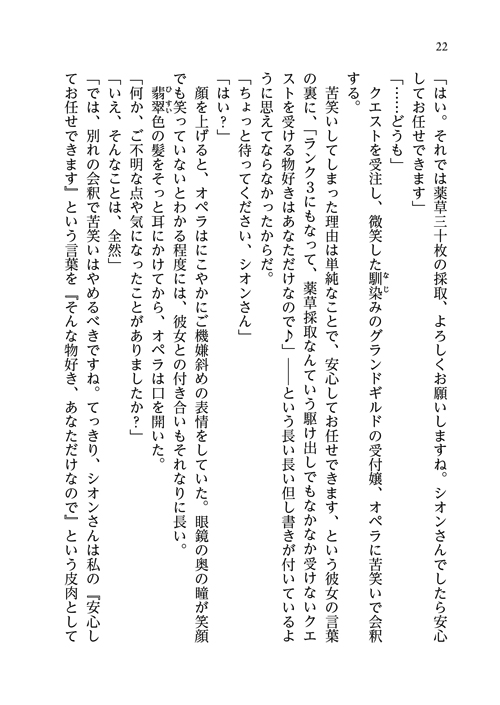 22
「はい。それでは薬草三十枚の採取、よろしくお願いしますね。シオンさんでしたら安心
してお任せできます」
「……どうも」
クエストを受注し、微笑した馴染みのグランドギルドの受付嬢、オペラに苦笑いで会釈
なじ
する。
苦笑いしてしまった理由は単純なことで、安心してお任せできます、という彼女の言葉
の裏に、「ランク3にもなって、薬草採取なんていう駆け出しでもなかなか受けないクエ
ストを受ける物好きはあなただけなので♪」――という長い長い但し書きが付いているよ
うに思えてならなかったからだ。
「ちょっと待ってください、シオンさん」
「はい?」
顔を上げると、オペラはにこやかにご機嫌斜めの表情をしていた。眼鏡の奥の瞳が笑顔
でも笑っていないとわかる程度には、彼女との付き合いもそれなりに長い。
翡翠色の髪をそっと耳にかけてから、オペラは口を開いた。
ひすい
「何か、ご不明な点や気になったことがありましたか?」
「いえ、そんなことは、全然」
「では、別れの会釈で苦笑いはやめるべきですね。てっきり、シオンさんは私の『安心し
てお任せできます』という言葉を『そんな物好き、あなただけなので』という皮肉として